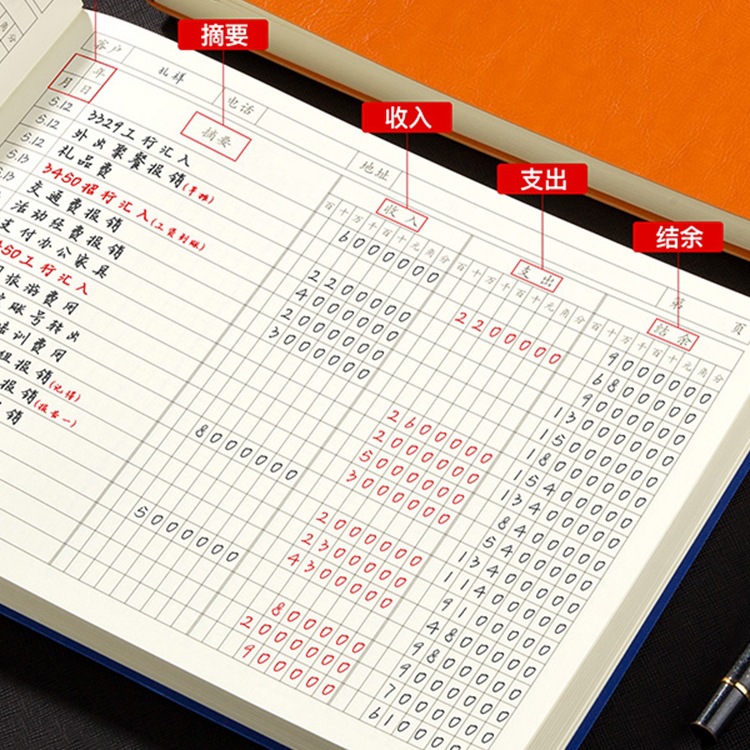 摘要
收入
支出
结余
角分
客户 礼祥 电话 地址 第 页
年
月 日
摘要
收入
支出
结余
百十万千百十元角分
百十万千百十元角分
百十万千百十元角分
5.12 3329工行汇入
5.12 外出聚餐报销
5.12 礼品费
5.13 3450招行汇入(工资到账)
交通费报销
活动经费报销
支付办公家具
50工行汇入
旅游费用
账号转出
培训费用
组报销
报销
销
6000000
2200000
4000000
2000000
3000000
8000000
5000000
2200000
2600000
2000000
5000000
3000000
2000000
2300000
4300000
800000
2000000
900000
9000000
6800000
9000000
13000000
15000000
18000000
15400000
13400000
8400000
5400000
13400000
11400000
9100000
4800000
9800000
9000000
7000000
6100000